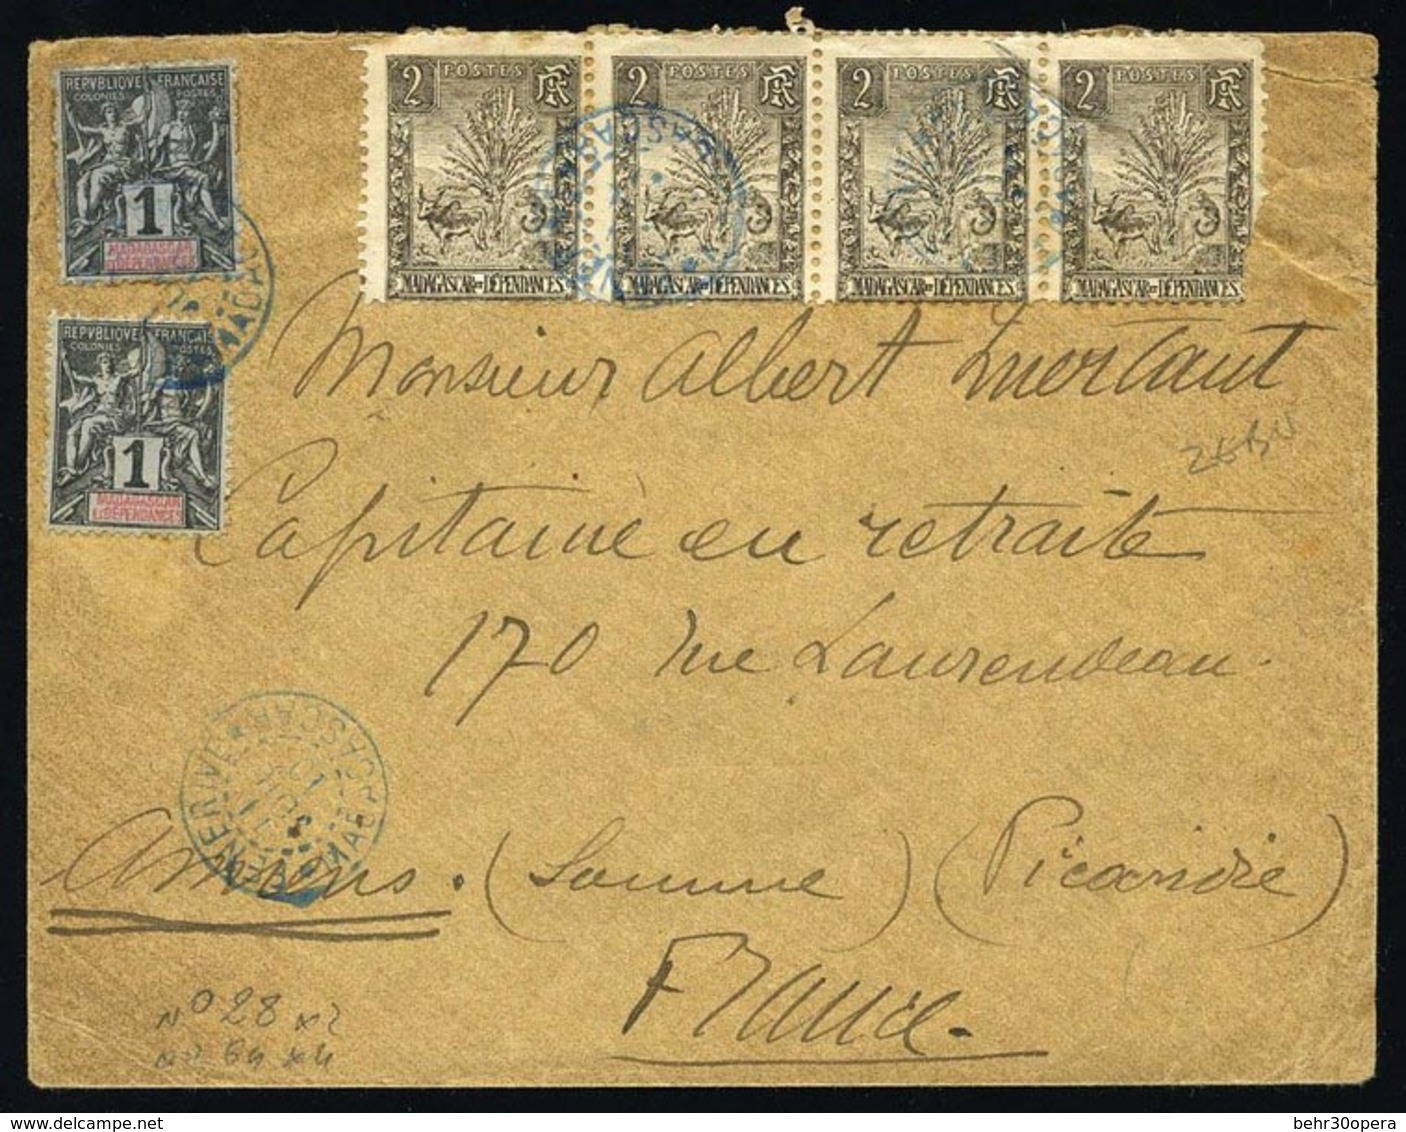 REPVBLIQVE FRANCAISE
COLONIES POSTES
1
MADAGASCAR
ET DÉPENDANCES
REPVBLIQVE FRANCAISE
COLONIES POSTES
1
MADAGASCAR
ET DÉPENDANCES
2 POSTES RF
MADAGASCAR ET DÉPENDANCES
2 POSTES RF
MADAGASCAR ET DÉPENDANCES
2 POSTES RF
MADAGASCAR ET DÉPENDANCES
2 POSTES RF
MADAGASCAR ET DÉPENDANCES
Monsieur Albert
ZEBU
Capitaine en retraite
170 rue Laurendeau.
Amiens. (Somme) (Picardie)
France.
No 28 x2
x4
behr30opera